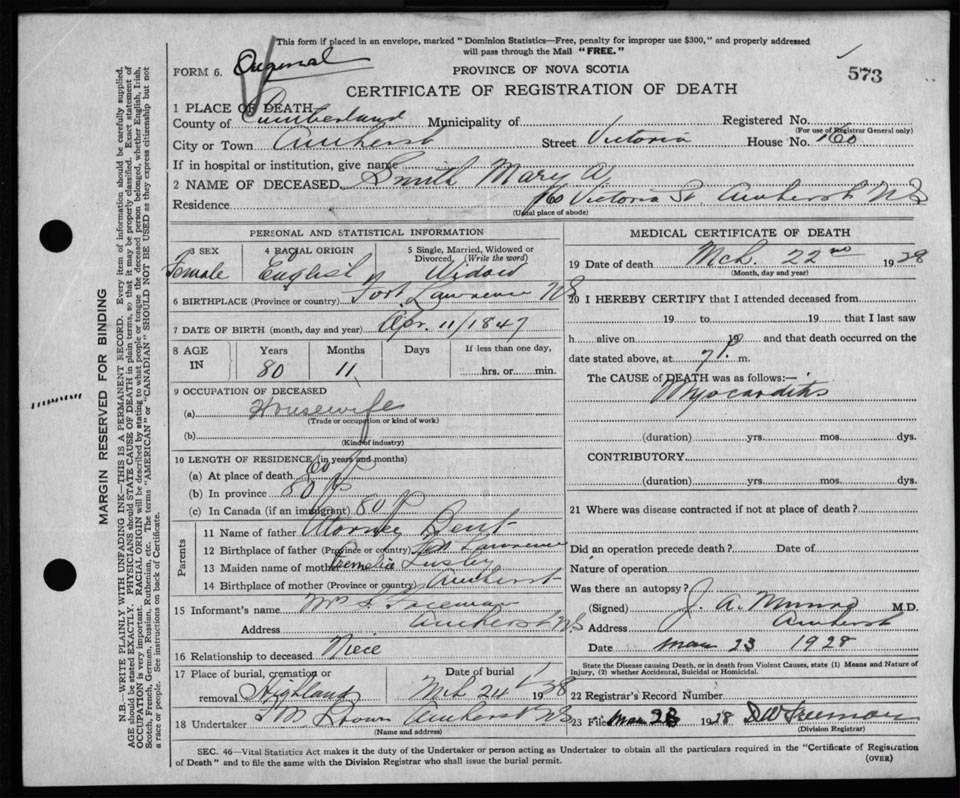 This form if placed in an envelope, marked "Dominion Statistics—Free, penalty for improper use $300," and properly addressed
will pass through the Mail "FREE."
FORM 6. Original
573
PROVINCE OF NOVA SCOTIA
CERTIFICATE OF REGISTRATION OF DEATH
1 PLACE OF DEATH
County of Cumberland Municipality of Registered No.
(For use of Registrar General only)
City or Town Amherst Street Victoria House No. 160
If in hospital or institution, give name
2 NAME OF DECEASED Smith Mary A
Residence 160 Victoria St Amherst NS
(Usual place of abode)
PERSONAL AND STATISTICAL INFORMATION
3 SEX 4 RACIAL ORIGIN 5 Single, Married, Widowed or
Divorced, (Write the word)
Female English Widow
6 BIRTHPLACE (Province or country) Fort Lawrence NS
7 DATE OF BIRTH (month, day and year) Apr. 11/1847
8 AGE IN Years Months Days If less than one day,
80 11 hrs. or min.
9 OCCUPATION OF DECEASED
(a) Housewife
(Trade or occupation or kind of work)
(b)
(Kind of industry)
10 LENGTH OF RESIDENCE (in years and months)
(a) At place of death 60
(b) In province 80
(c) In Canada (if an immigrant) 80
Parents
11 Name of father Dent
12 Birthplace of father (Province or country) Ft Lawrence
13 Maiden name of mother Lusby
14 Birthplace of mother (Province or country) Amherst
15 Informant's name Mrs Freeman
Address Amherst NS
16 Relationship to deceased Niece
17 Place of burial, cremation or Date of burial
removal Highland Mch 24 1928
18 Undertaker Brown Amherst NS
(Name and address)
MEDICAL CERTIFICATE OF DEATH
19 Date of death Mch. 22nd 1928
(Month, day and year)
20 I HEREBY CERTIFY that I attended deceased from
19 to 19 that I last saw
h alive on 19 and that death occurred on the
date stated above, at 7 P. m.
The CAUSE of DEATH was as follows:—
Myocarditis
(duration) yrs. mos. dys.
CONTRIBUTORY
(duration) yrs. mos. dys.
21 Where was disease contracted if not at place of death?
Did an operation precede death? Date of
Nature of operation
Was there an autopsy?
(Signed) J. A. Munro M.D.
Address Amherst
Date Mar 23 1928
State the Disease causing Death, or in death from Violent Causes, state (1) Means and Nature of
Injury, (2) whether Accidental, Suicidal or Homicidal.
22 Registrar's Record Number
23 Filed Mar 23 1928 D W Freeman
(Division Registrar)
SEC. 46—Vital Statistics Act makes it the duty of the Undertaker or person acting as Undertaker to obtain all the particulars required in the "Certificate of Registration
of Death" and to file the same with the Division Registrar who shall issue the burial permit. (OVER)
MARGIN RESERVED FOR BINDING
N.B.—WRITE PLAINLY WITH UNFADING INK—THIS IS A PERMANENT RECORD. Every item of information should be carefully supplied.
AGE should be stated EXACTLY. PHYSICIANS should STATE CAUSE OF DEATH in plain terms, so that it may be properly classified. Exact statement of
OCCUPATION is very important. RACIAL ORIGIN will be described by stating to what people or tongue the deceased person belonged, whether English, Irish,
Scotch, French, German, Russian, Ruthenian, etc. The terms "AMERICAN" or "CANADIAN" SHOULD NOT BE USED as they express citizenship but not
a race or people. See instructions on back of Certificate.